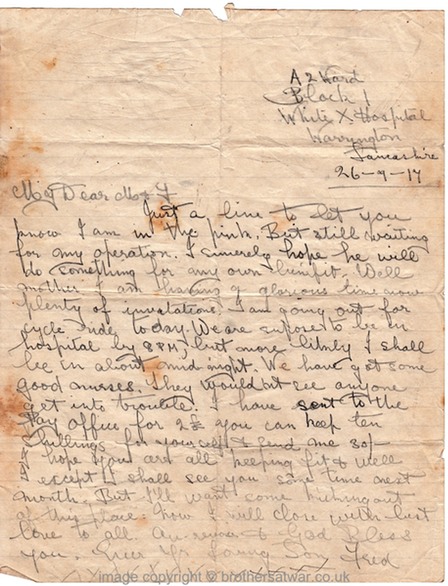 A 2 Ward
Block 1
White X Hospital
Warrington
Lancashire
26-9-17
My Dear Ma & F
Just a line to let you
know I am in the pink. But still waiting
for my operation. I sincerely hope he will
do something for my own benifit. Well
mother I am having a glorious time now
plenty of invatations. I am going out for
cycle ride today. We are suposed to be in
hospital by 8PM, but more likely I shall
be in about mid night. We have got some
good nurses. They wouldnt see anyone
get into trouble. I have sent to the
Pay Office for you can keep ten
shillings for yourself & send me
hope you are all keeping fit & well
except I shall see you some time next
month. But I'll want some
of this place. Now I will close with best
love to all. & God Bless
you. Ever Yr loving Son Fred
image copyright © brothersatwar.co.uk